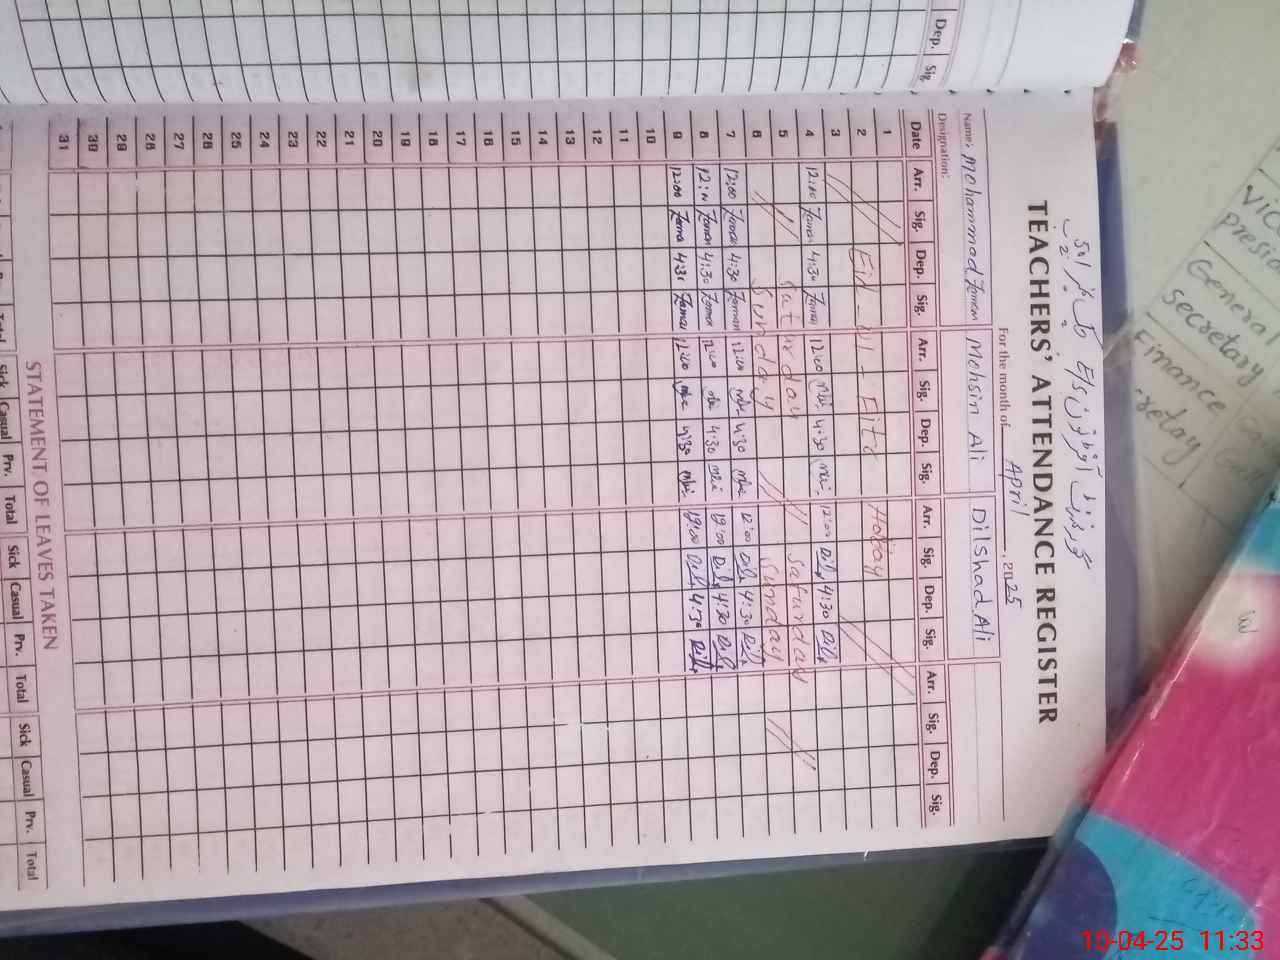 TEACHERS' ATTENDANCE REGISTER
For the month of April, 2025
Name: Mohammad Zaman Mohsin Ali Dilshad Ali
Designation:
Date Arr. Sig. Dep. Sig. Arr. Sig. Dep. Sig. Arr. Sig. Dep. Sig. Arr. Sig. Dep. Sig.
1
2 Eid-ul-Fitr Holiay
3
4 12:00 Zaman 4:30 Zaman 12:00 4:30 12:00 Dil 4:30 Dil
5 Saturday Saturday
6 Sunday Sunday
7 12:00 Zaman 4:30 Zaman 12:00 4:30 12:00 Dil 4:30 Dil
8 Zaman 4:30 Zaman 12:00 4:30 12:00 Dil 4:30 Dil
9 12:00 Zama 4:31 Zaman 12:00 4:30 12:00 Dil 4:30 Dil
10
11
12
13
14
15
16
17
18
19
20
21
22
23
24
25
26
27
28
29
30
31
STATEMENT OF LEAVES TAKEN
Sick Casual Prv. Total Sick Casual Prv. Total Sick Casual Prv. Total
Dep. Sig.
General
secretary
Finance
10-04-25 11:33